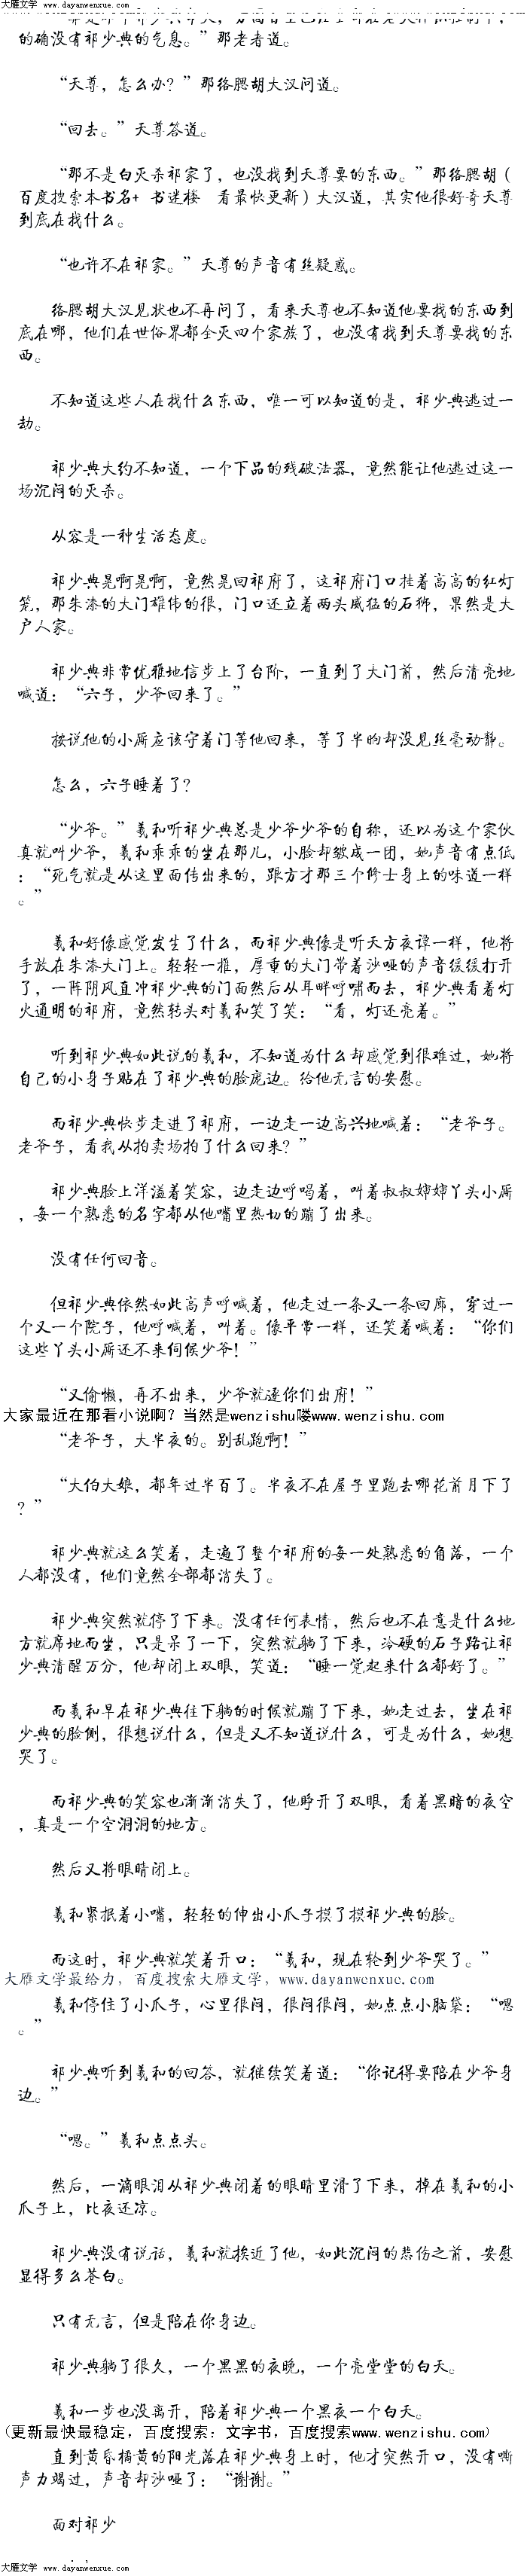 大雁文学 www.dayanwenxue.com
的确没有祁少典的气息。”那老者道。
“天尊，怎么办？”那络腮胡大汉问道。
“回去。”天尊答道。
“那不是白灭杀祁家了，也没找到天尊要的东西。”那络腮胡（
百度搜索本书名+ 书迷楼 看最快更新）大汉道，其实他很好奇天尊
到底在找什么。
“也许不在祁家。”天尊的声音有丝疑惑。
络腮胡大汉见状也不再问了，看来天尊也不知道他要找的东西到
底在哪，他们在世俗界都全灭四个家族了，也没有找到天尊要找的东
西。
不知道这些人在找什么东西，唯一可以知道的是，祁少典逃过一
劫。
祁少典大约不知道，一个下品的残破法器，竟然能让他逃过这一
场沉闷的灭杀。
从容是一种生活态度。
祁少典晃啊晃啊，竟然晃回祁府了，这祁府门口挂着高高的红灯
笼，那朱漆的大门雄伟的很，门口还立着两头威猛的石狮，果然是大
户人家。
祁少典非常优雅地信步上了台阶，一直到了大门前，然后清亮地
喊道：“六子，少爷回来了。”
按说他的小厮应该守着门等他回来，等了半晌却没见丝毫动静。
怎么，六子睡着了？
“少爷。”羲和听祁少典总是少爷少爷的自称，还以为这个家伙
真就叫少爷，羲和乖乖的坐在那儿，小脸却皱成一团，她声音有点低
：“死气就是从这里面传出来的，跟方才那三个修士身上的味道一样
。”
羲和好像感觉发生了什么，而祁少典像是听天方夜谭一样，他将
手放在朱漆大门上。轻轻一推，厚重的大门带着沙哑的声音缓缓打开
了，一阵阴风直冲祁少典的门面然后从耳畔呼啸而去，祁少典看着灯
火通明的祁府，竟然转头对羲和笑了笑：“看，灯还亮着。”
听到祁少典如此说的羲和，不知道为什么却感觉到很难过，她将
自己的小身子贴在了祁少典的脸庞边。给他无言的安慰。
而祁少典快步走进了祁府，一边走一边高兴地喊着：“老爷子。
老爷子，看我从拍卖场拍了什么回来？”
祁少典脸上洋溢着笑容，边走边呼喝着，叫着叔叔婶婶丫头小厮
，每一个熟悉的名字都从他嘴里热切的蹦了出来。
没有任何回音。
但祁少典依然如此高声呼喊着，他走过一条又一条回廊，穿过一
个又一个院子，他呼喊着，叫着。像平常一样，还笑着喊着：“你们
这些丫头小厮还不来伺候少爷！”
“又偷懒，再不出来，少爷就逐你们出府！”
大家最近在那看小说啊？当然是wenzishu喽www.wenzishu.com
“老爷子，大半夜的。别乱跑啊！”
“大伯大娘，都年过半百了。半夜不在屋子里跑去哪花前月下了
？”
祁少典就这么笑着，走遍了整个祁府的每一处熟悉的角落，一个
人都没有，他们竟然全部都消失了。
祁少典突然就停了下来。没有任何表情，然后也不在意是什么地
方就席地而坐，只是呆了一下，突然就躺了下来，冷硬的石子路让祁
少典清醒万分，他却闭上双眼，笑道：“睡一觉起来什么都好了。”
而羲和早在祁少典往下躺的时候就蹦了下来，她走过去，坐在祁
少典的脸侧，很想说什么，但是又不知道说什么，可是为什么，她想
哭了。
而祁少典的笑容也渐渐消失了，他睁开了双眼，看着黑暗的夜空
，真是一个空洞洞的地方。
然后又将眼睛闭上。
羲和紧抿着小嘴，轻轻的伸出小爪子摸了摸祁少典的脸。
而这时，祁少典就笑着开口：“羲和，现在轮到少爷哭了。”
大雁文学最给力，百度搜索大雁文学，www.dayanwenxue.com
羲和停住了小爪子，心里很闷，很闷很闷，她点点小脑袋：“嗯
。”
祁少典听到羲和的回答，就继续笑着道：“你记得要陪在少爷身
边。”
“嗯。”羲和点点头。
然后，一滴眼泪从祁少典闭着的眼睛里滑了下来，掉在羲和的小
爪子上，比夜还凉。
祁少典没有说话，羲和就挨近了他，如此沉闷的悲伤之前，安慰
显得多么苍白。
只有无言，但是陪在你身边。
祁少典躺了很久，一个黑黑的夜晚，一个亮堂堂的白天。
羲和一步也没离开，陪着祁少典一个黑夜一个白天。
(更新最快最稳定，百度搜索：文字书，百度搜索www.wenzishu.com)
直到黄昏橘黄的阳光落在祁少典身上时，他才突然开口，没有嘶
声力竭过，声音却沙哑了：“谢谢。”
面对祁少
大雁文学 www.dayanwenxue.com